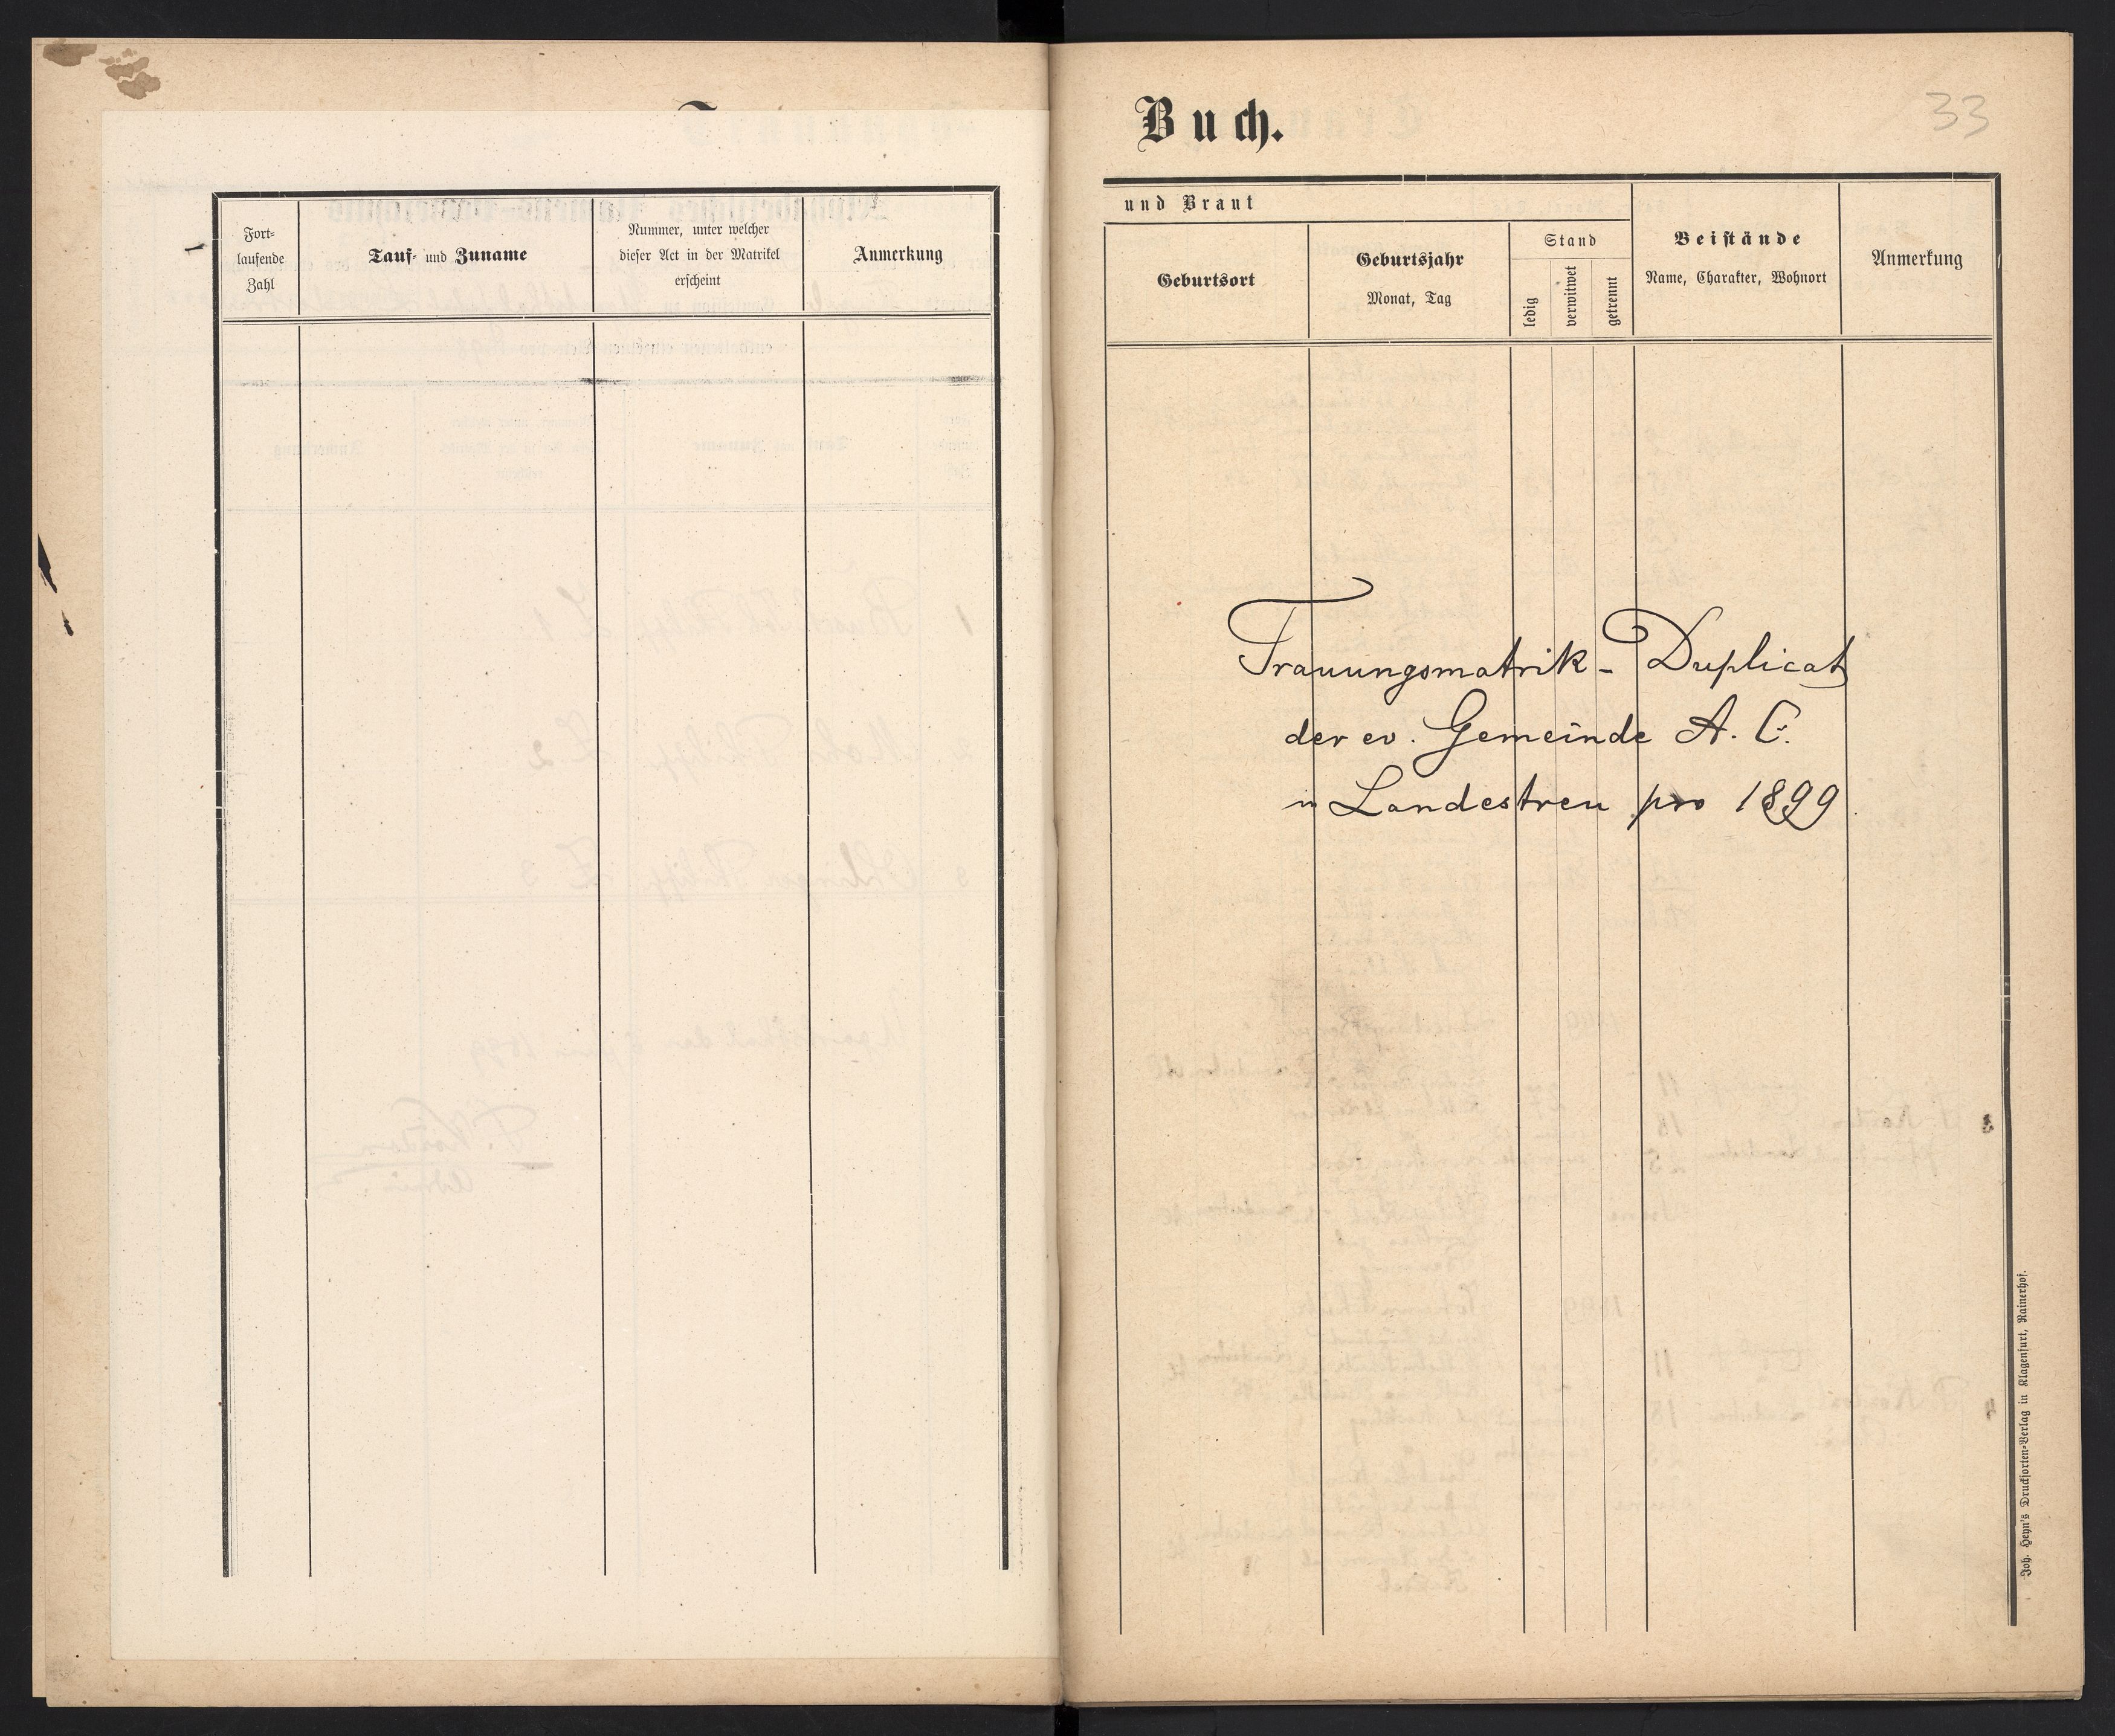 Fort-
laufende
Zahl
Tauf- und Zuname
Nummer, unter welcher
dieser Act in der Matrikel
erscheint
Anmerkung
Buch.
33
und Braut
Geburtsort
Geburtsjahr
Monat, Tag
Stand
ledig
verwitwet
getrennt
Beistände
Name, Charakter, Wohnort
Anmerkung
Trauungsmatrik - Duplicat
der ev. Gemeinde A. C.
in Landestreu pro 1899
Joh. Heyn's Drucksorten-Verlag in Klagenfurt, Rainerhof.